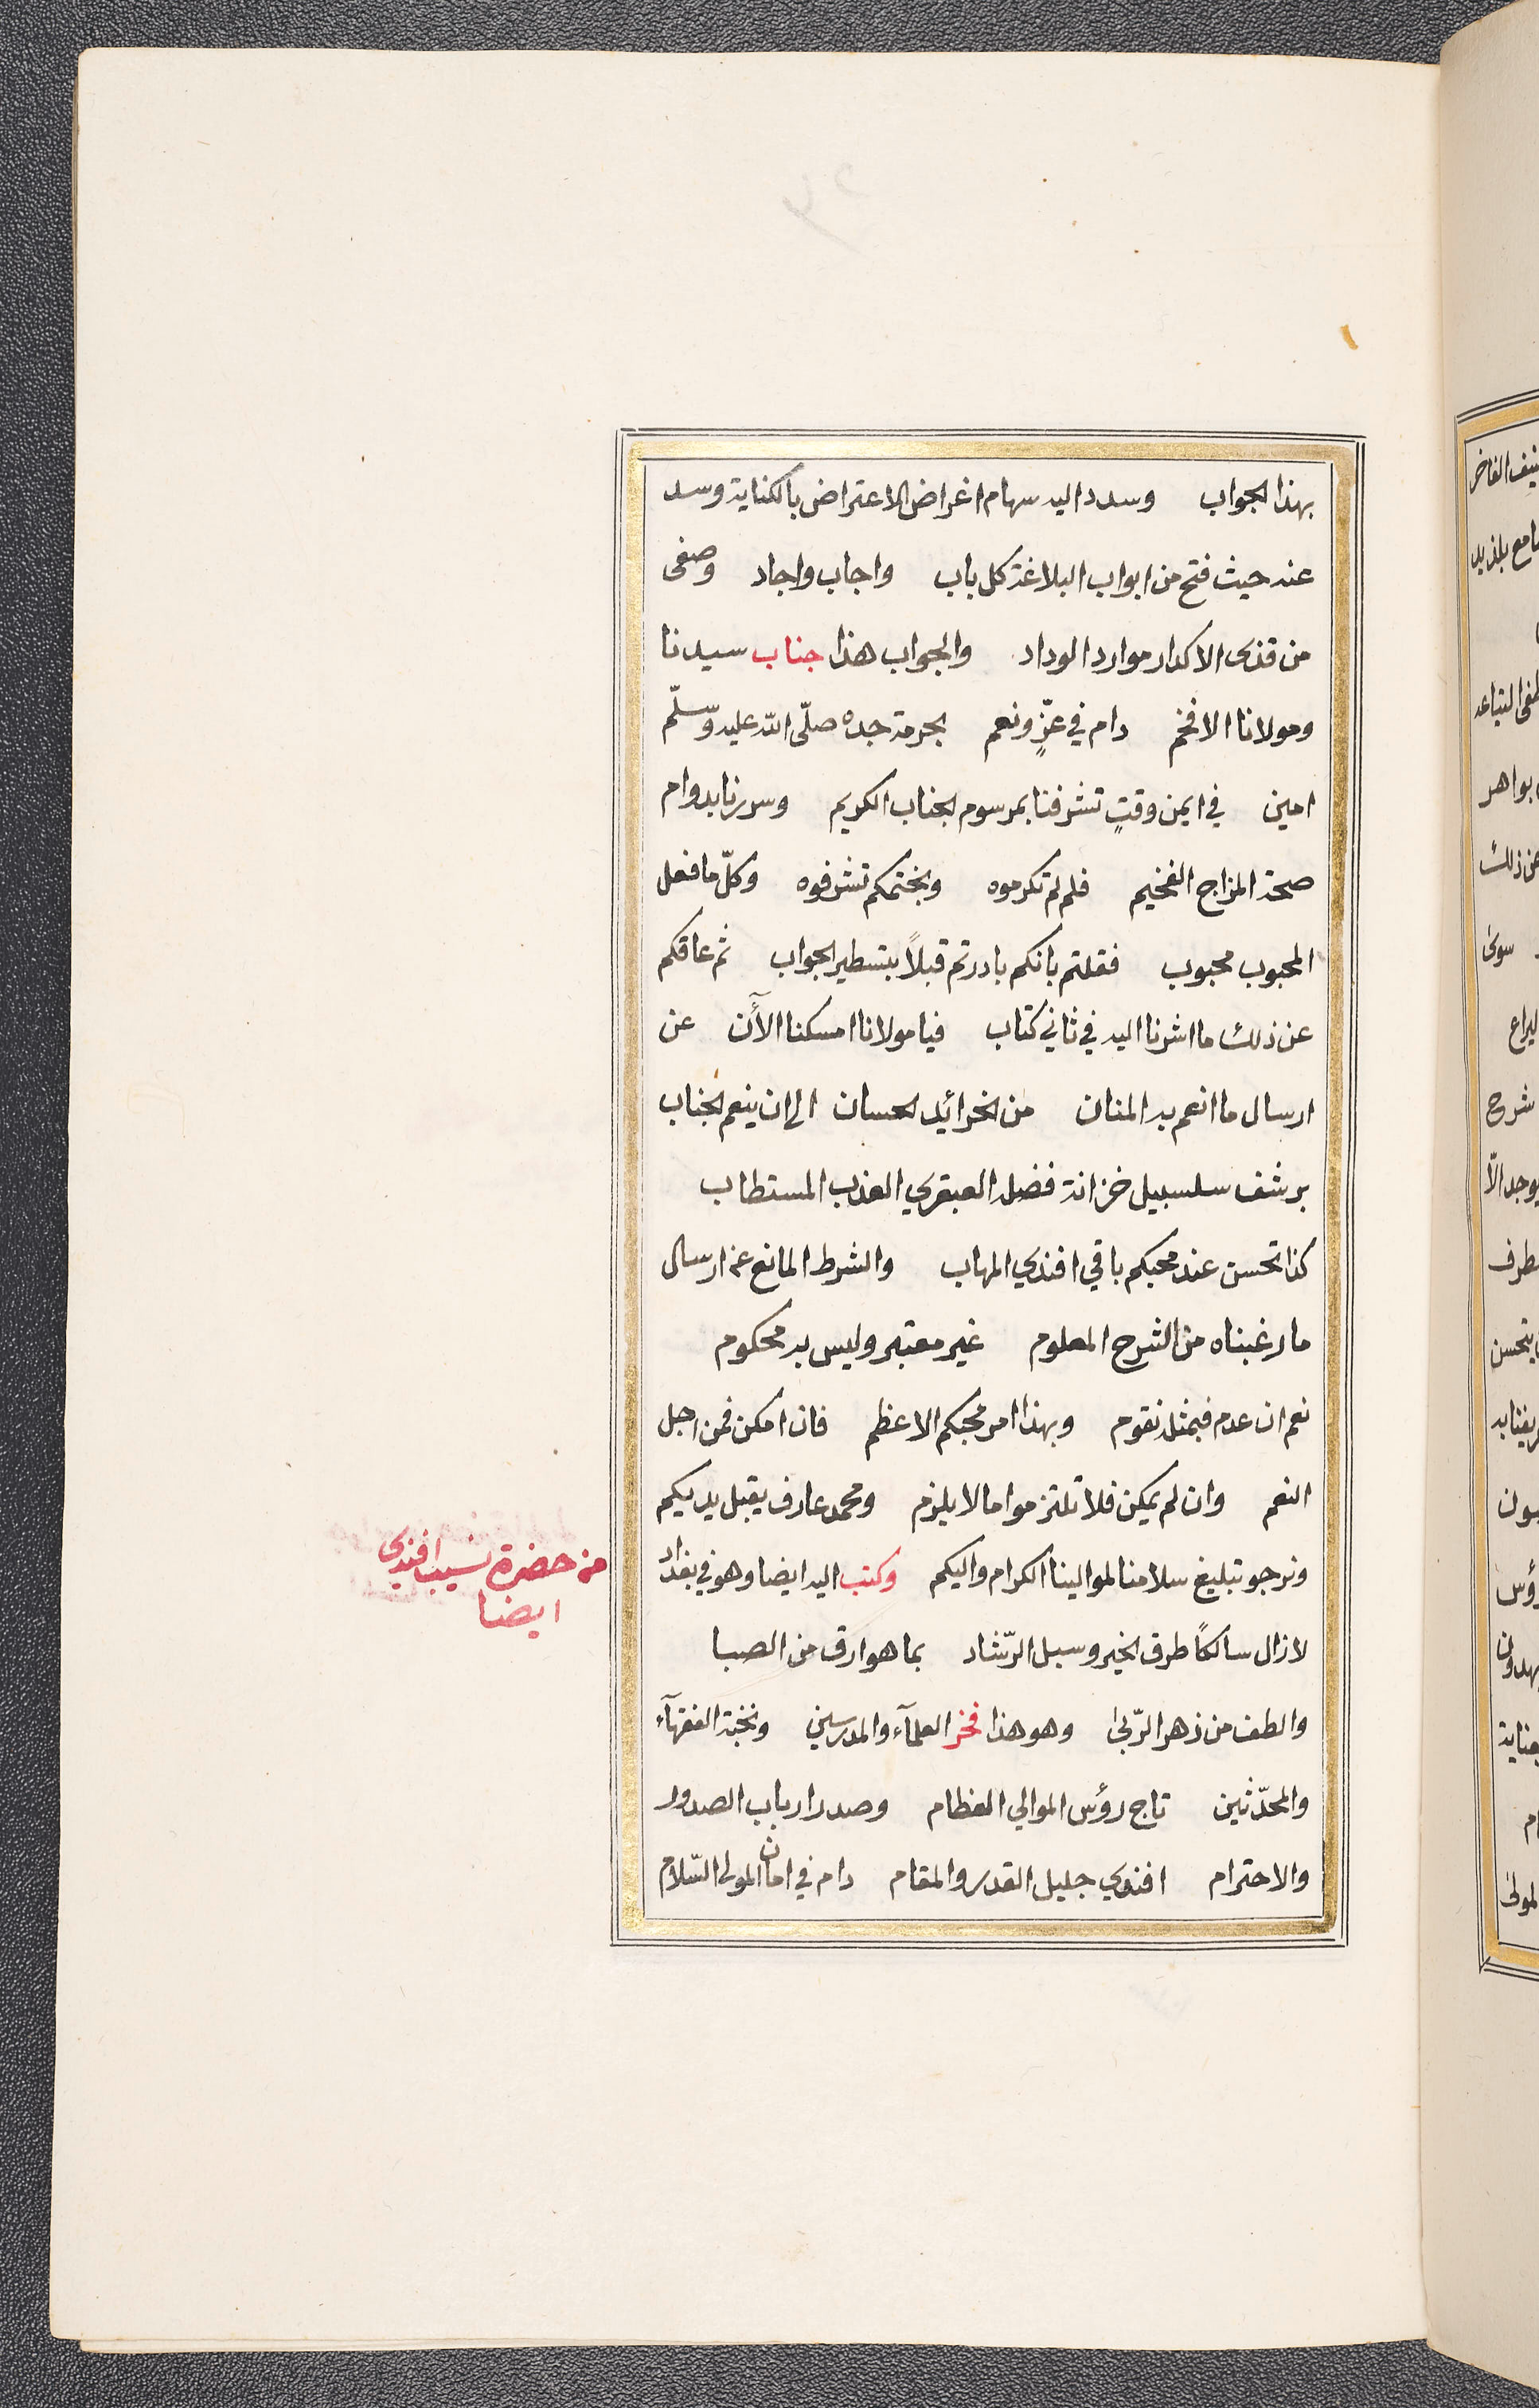 بهذا الجواب وسدد اليه سهام اغراض الاعتراض بالكناية وسد
عنه حيث فتح من ابواب البلاغة كل باب واجاب واجاد وصفى
من قذى الاكدار موارد الوداد والجواب هذا جناب سيدنا
ومولانا الافخم دام في عزٍّ ونعم بحرمة جده صلّى الله عليه وسلّم
امين في ايمن وقتٍ تشرفنا بمرسوم الجناب الكريم وسررنا بدوام
صحة المزاج الفخيم فلم لم تكرموه وبختمكم تشرفوه وكلّ ما فعل
المحبوب محبوب فقلتم بانكم بادرتم قبلاً بتسطير الجواب ثم عاقكم
عن ذلك ما اشرنا اليه في ثاني كتاب فيا مولانا امسكنا الآن عن
ارسال ما انعم به المنان من الخرائد الحسان الى ان ينعم الجناب
برشف سلسبيل خزانة فضله العبقري العذب المستطاب
كذا تحسن عند محبكم باقي افندي المهاب والشرط المانع عن ارسال
ما رغبناه من الشرح المعلوم غير معتبر وليس به محكوم
نعم ان عدم فبمثله نقوم وبهذا امر محبكم الاعظم فان امكن فمن اجل
النعم وان لم يمكن فلا تلتزموا ما لا يلزم ومحمد عارف يقبل يديكم
ونرجو تبليغ سلامنا لموالينا الكرام واليكم وكتب اليه ايضا وهو في بغداد
لازال سالكاً طرق الخير وسبل الرّشاد بما هو ارق من الصبا
والطف من زهر الرّبىٰ وهو هذا فخر العلمآء والمدرسين ونخبة الفقهآء
والمحدّثين تاج رؤس الموالي العظام وصدر ارباب الصدور
والاحترام افندي جليل القدر والمقام دام في امان المولى السّلام
من حضرة نسيب افندي
ايضا